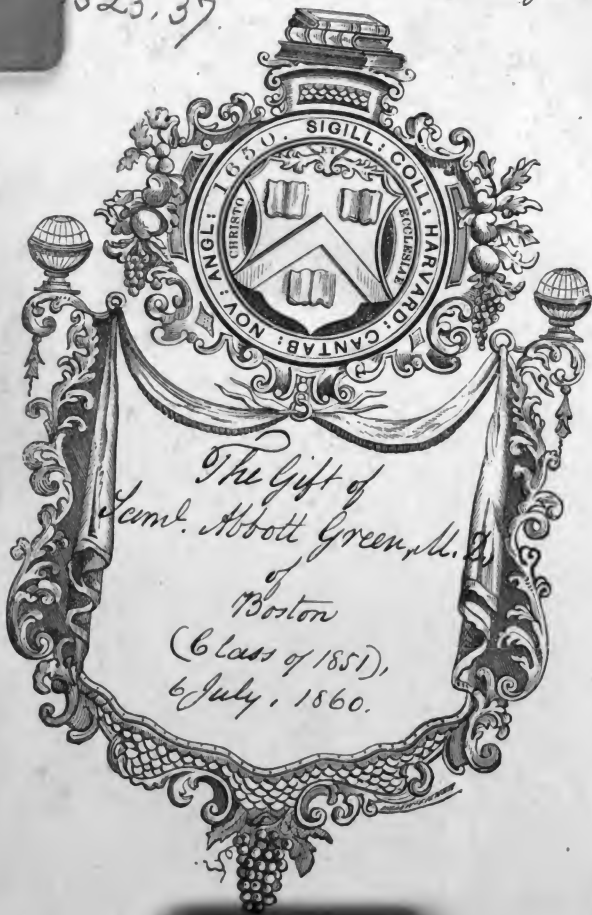 SIGILL: COLL: HARVARD: CANTAB: NOV: ANGL: 1650.
CHRISTO
ET
ECCLESIAE
The Gift of
Saml. Abbott Green, M. D.
of
Boston
(Class of 1851),
6 July, 1860.